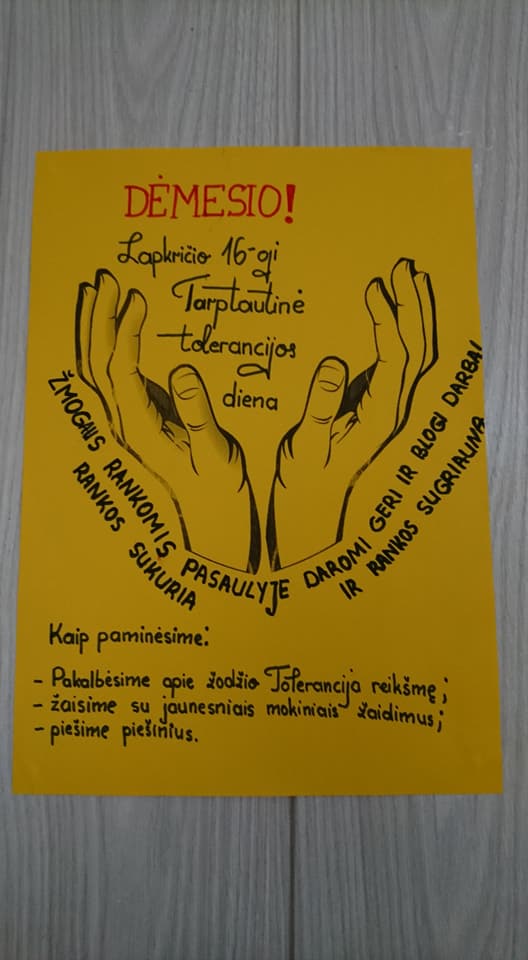 DĖMESIO!
Lapkričio 16-gi
Tarptautinė
tolerancijos
diena
ŽMOGAUS RANKOMIS PASAULYJE DAROMI GERI IR BLOGI DARBAI
RANKOS SUKURIA
IR RANKOS SUGRIAUNA
Kaip paminėsime:
- Pakalbėsime apie žodžio Tolerancija reikšmę;
- žaisime su jaunesniais mokiniais žaidimus;
- piešime piešinius.